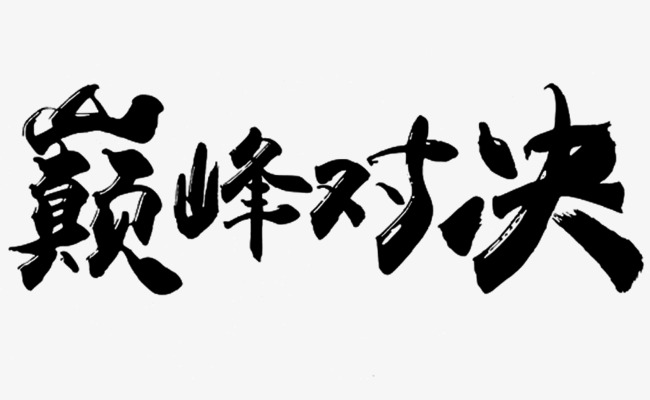 巅峰对决